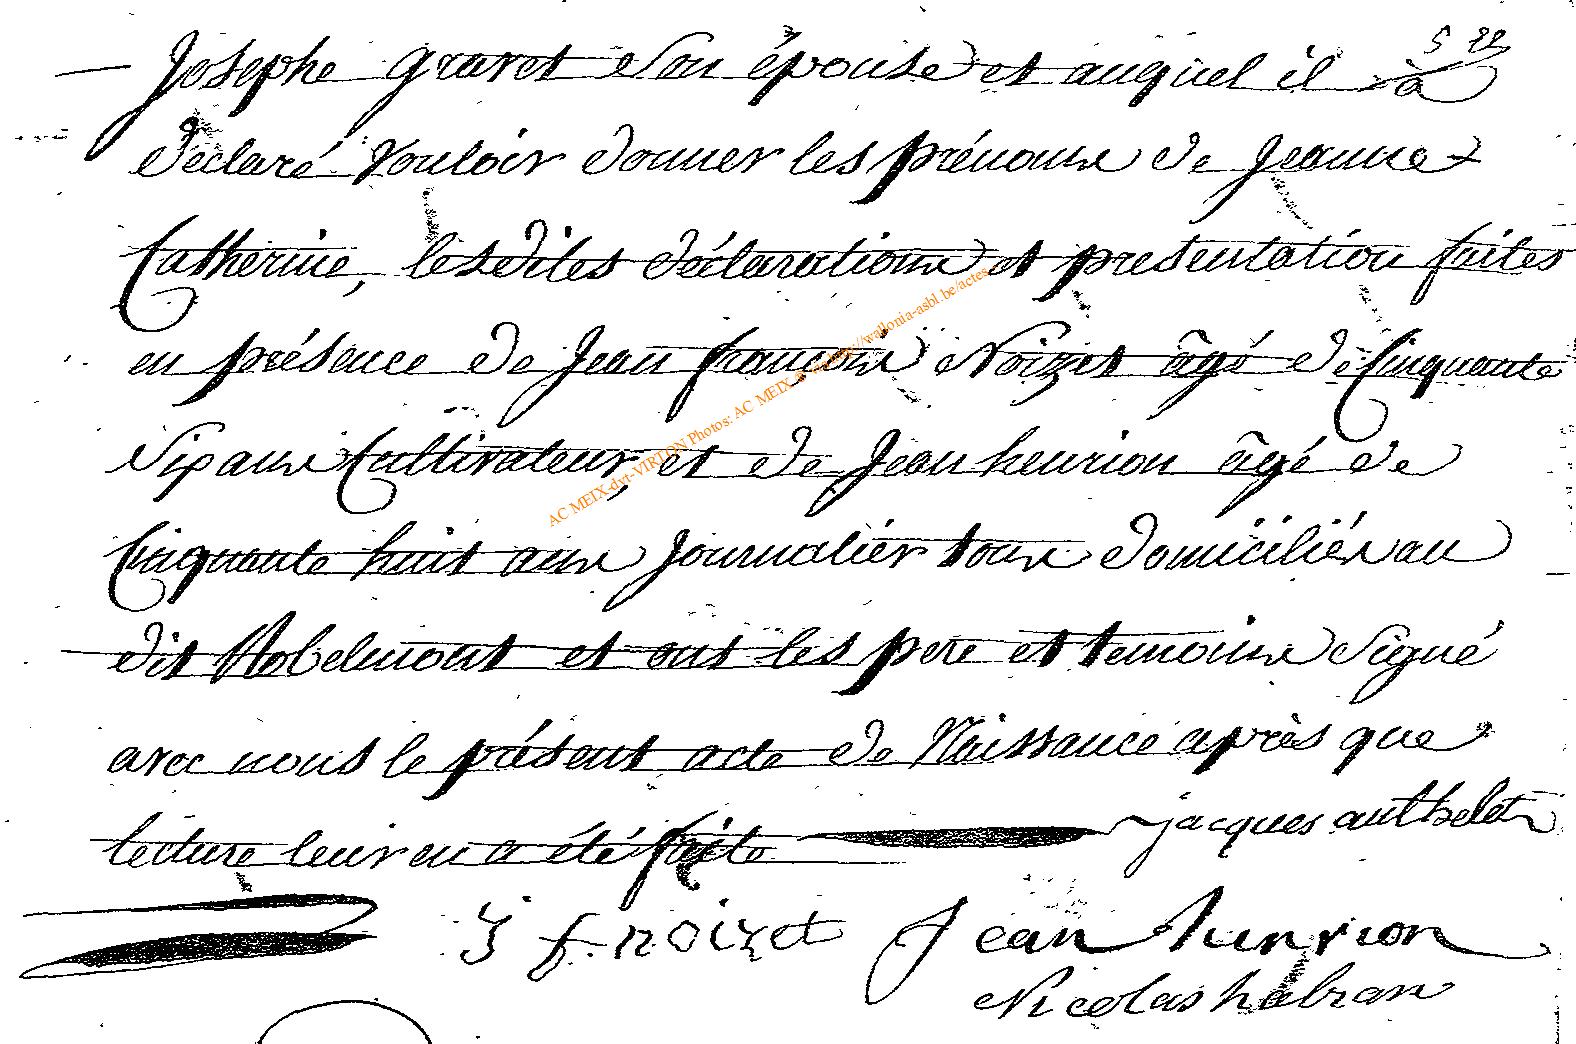 Josephe gravet son épouse et auquel il a
déclaré vouloir donner les prénoms de Jeanne
Catherine, lesdites déclarations et presentation faites
en présence de Jean françois Noizet âgé de Cinquante
Six ans Cultivateur, et de Jean henrion âgé de
Cinquante huit ans Journalier tous domiciliés au
dit Robelmont et ont les pere et temoins Signé
avec nous le présent acte de Naissance après que
lecture leur en a été faite jacques authelet
J f noizet Jean hunrion
Nicolas habran
AC MEIX-dvt-VIRTON Photos: AC MEIX wallonia-asbl.be/actes